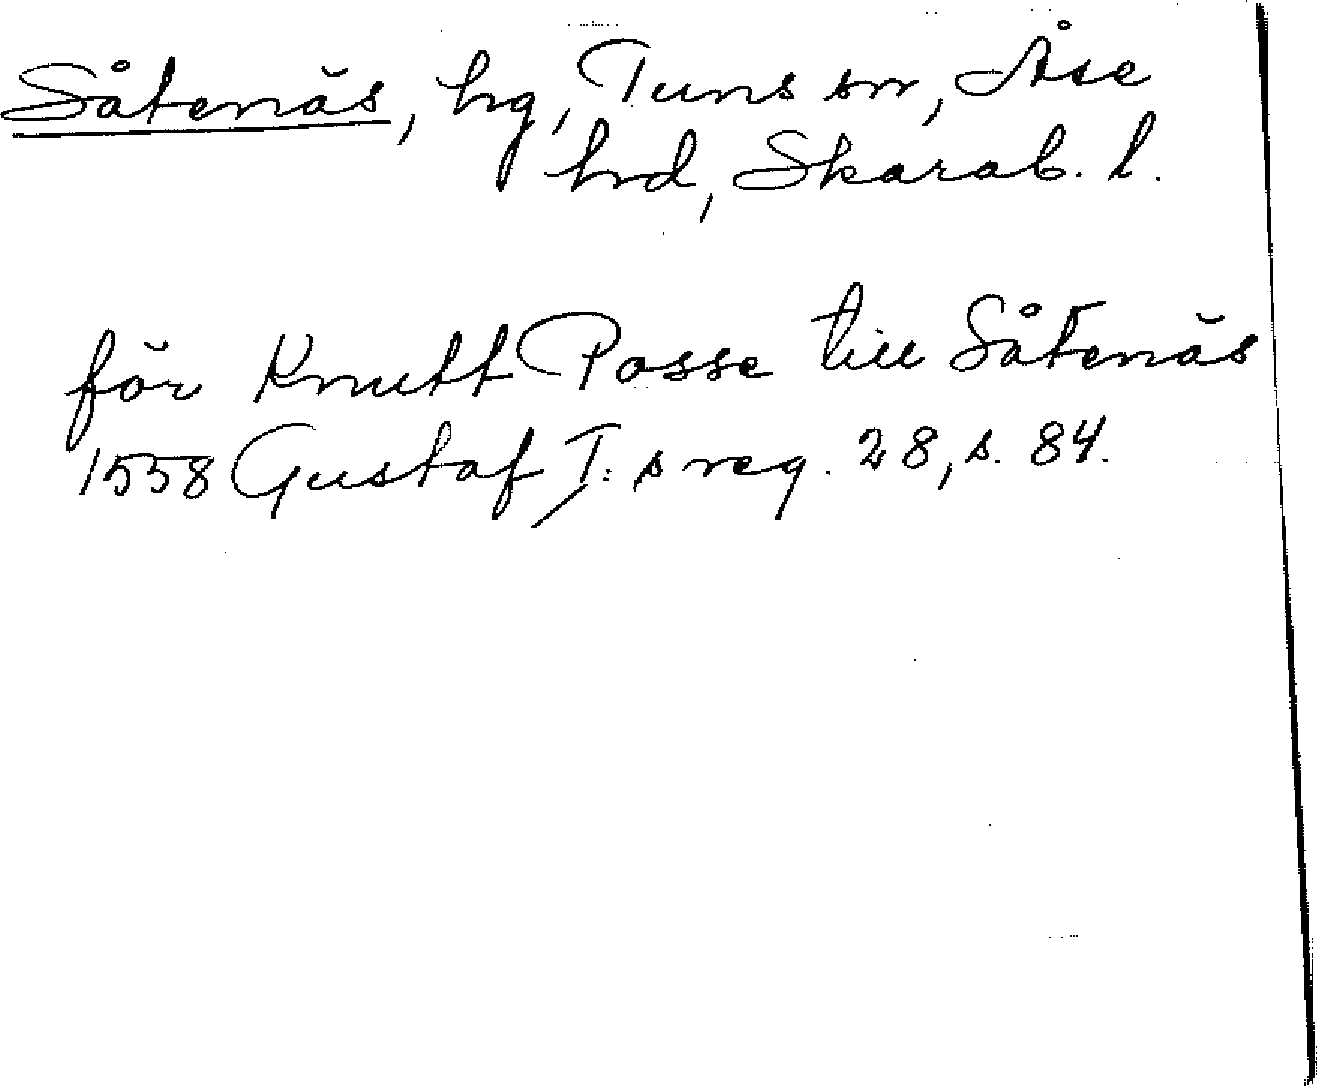 Såtenäs, hg, Tuns sn, Åse
hrd, Skarab. l.
för Knutt Posse till Såtenäs
1558 Gustaf I:s reg. 28, s. 84.